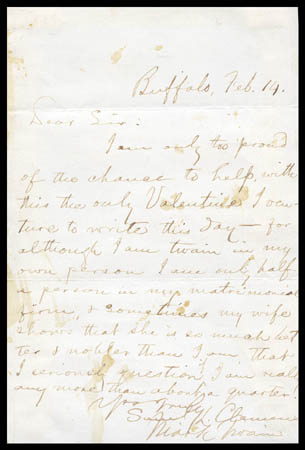 Buffalo, Feb. 14.
Dear Sir:
I am only too proud
of the chance to help, with
this the only Valentine I ven-
ture to write this day — for
although I am twain in my
own person I am only half
a person in my matrimonial
firm, & sometimes my wife
shows that she is so much bet
ter & nobler than I am, that
I seriously question if I am really
any more than about a quarter.
Yrs Truly
Sam L. Clemens
Mark Twain